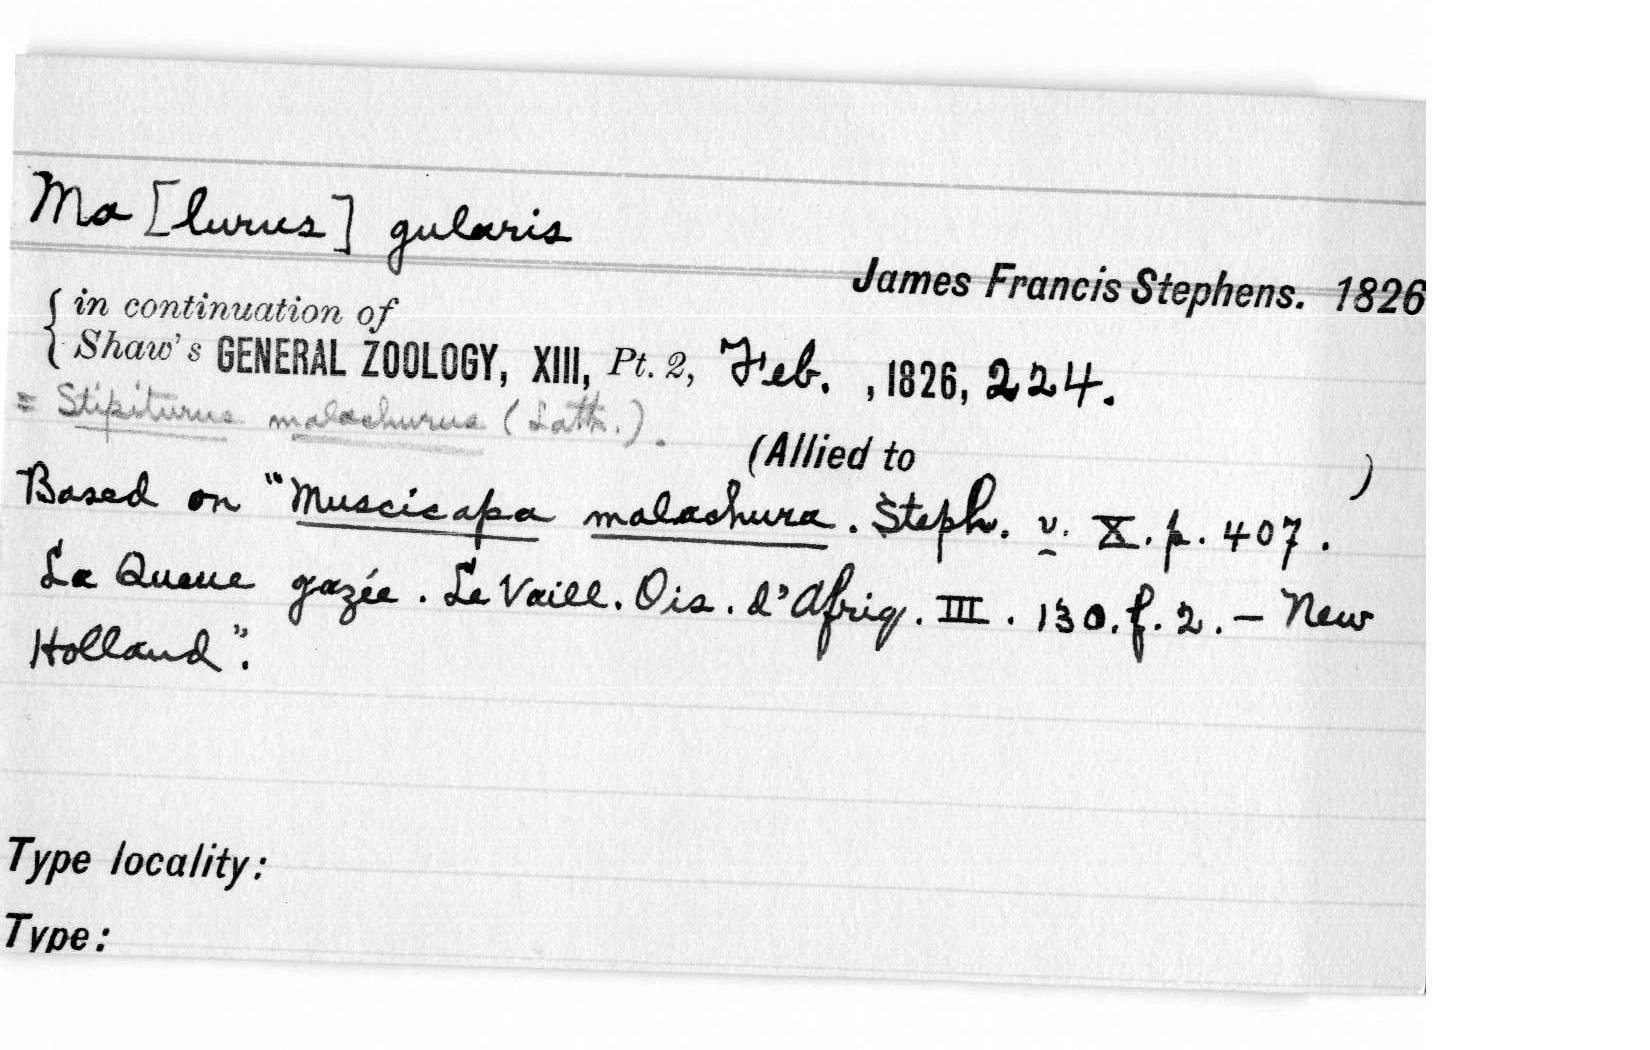 Ma [lurus] gularis
James Francis Stephens. 1826
{ in continuation of
Shaw's GENERAL ZOOLOGY, XIII, Pt. 2, Feb. , 1826, 224.
= Stipiturus malachurus (Lath.).
(Allied to )
Based on "Muscicapa malachura. Steph. v. X. p. 407.
La Queue gazée. Le Vaill. Ois. d'Afriq. III. 130. f. 2. — New
Holland".
Type locality:
Type: